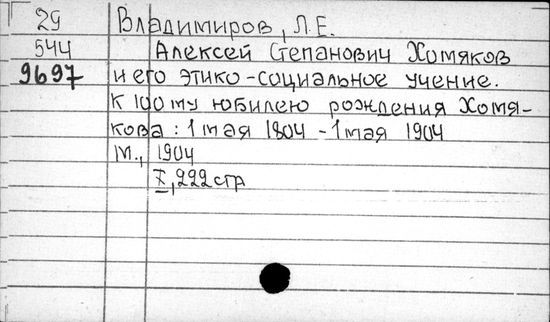 29 Владимиров, Л.Е.
544 Алексей Степанович Хомяков
9697 и его этико-социальное учение.
К 100му юбилею рождения Хомя-
кова: 1 мая 1804 - 1 мая 1904
М., 1904
X, 222 стр